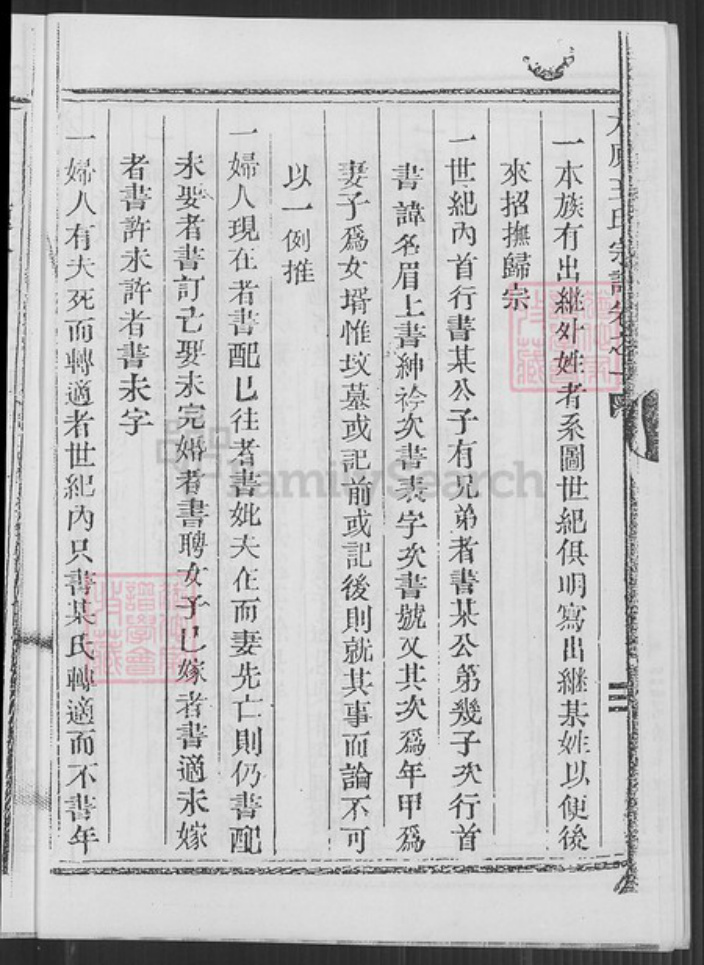 太原王氏宗譜卷之一
一本族有出繼外姓者系圖世紀俱明寫出繼某姓以便後
來招撫歸宗
一世紀內首行書某公子有兄弟者書某公第幾子次行首
書諱名眉上書紳衿次書表字次書號又其次爲年甲爲
妻子爲女壻惟坟墓或記前或記後則就其事而論不可
以一例推
一婦人現在者書配已往者書妣夫在而妻先亡則仍書配
未娶者書訂已娶未完婚者書聘女子已嫁者書適未嫁
者書許未許者書未字
一婦人有夫死而轉適者世紀內只書某氏轉適而不書年
三
FamilySearch